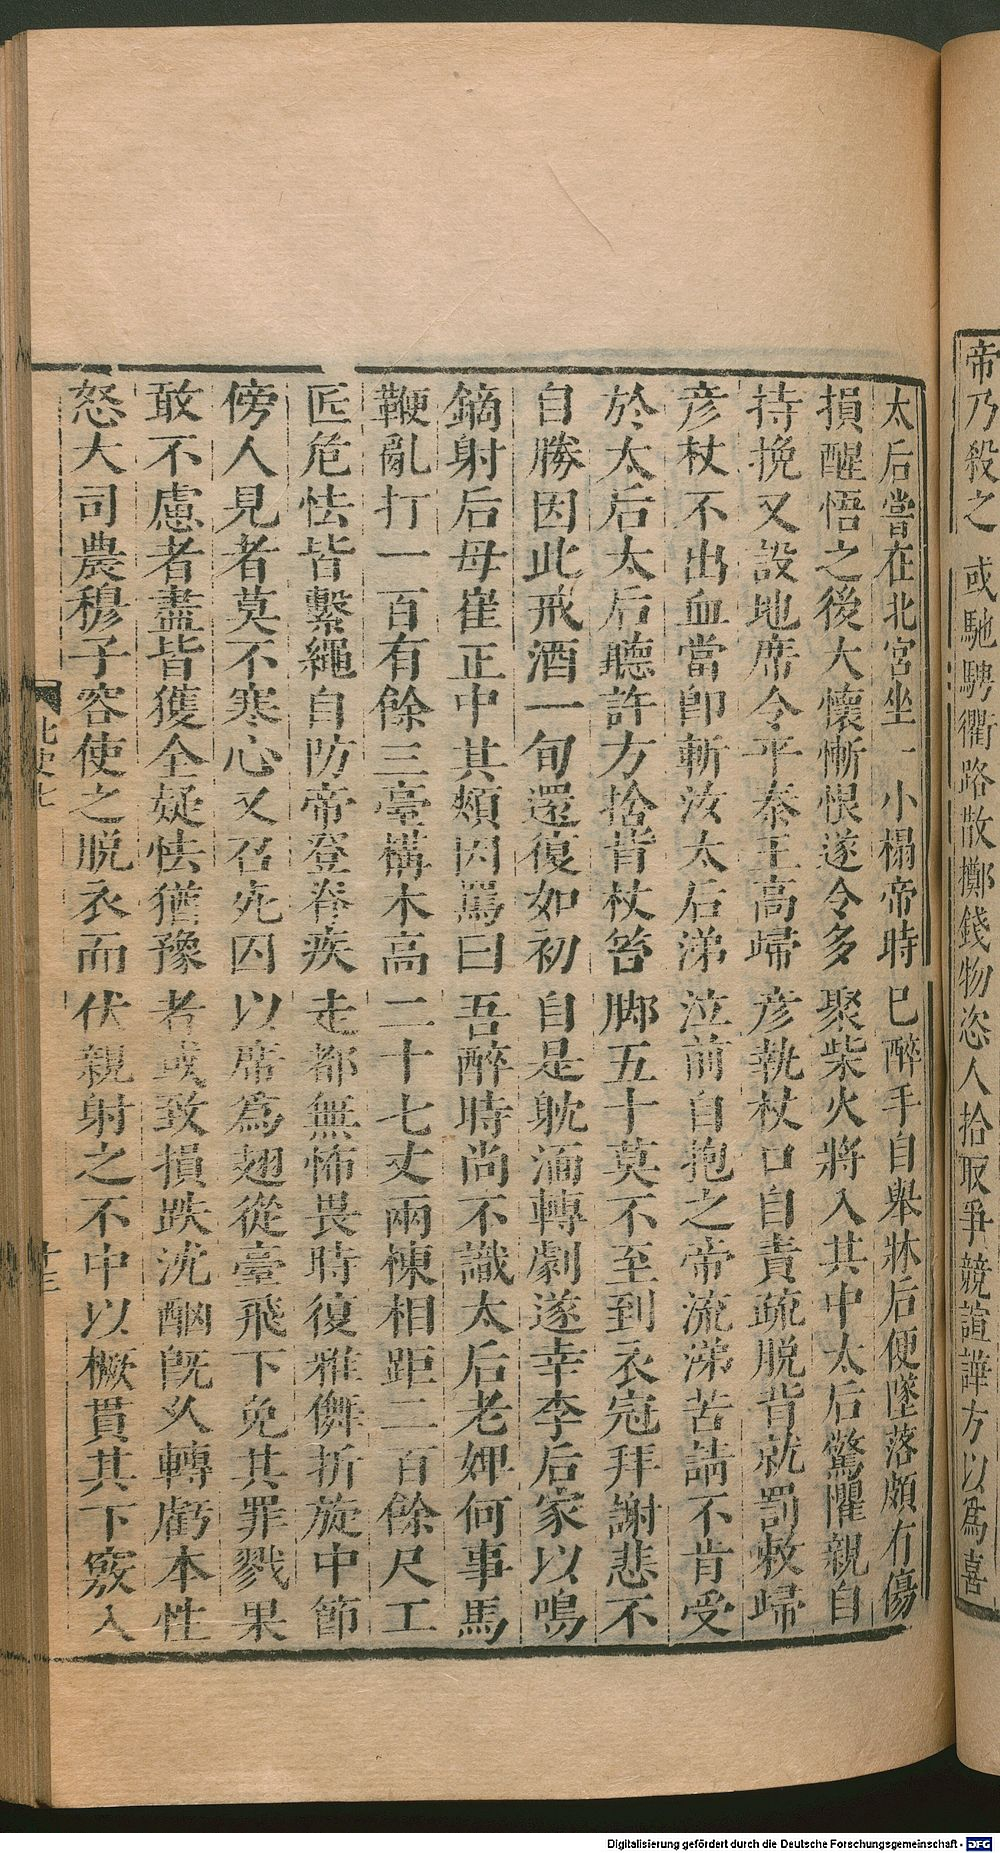 帝乃殺之或馳騁衢路散擲錢物恣人拾取爭競諠譁方以爲喜
太后嘗在北宮坐一小榻帝時已醉手自舉牀后便墜落頗有傷
損醒悟之後大懷慚恨遂令多聚柴火將入其中太后驚懼親自
持挽又設地席令平秦王高歸彦執杖口自責疏脫背就罰敕歸
彦杖不出血當卽斬汝太后涕泣前自抱之帝流涕苦請不肯受
於太后太后聽許方捨背杖笞脚五十莫不至到衣冠拜謝悲不
自勝因此戒酒一旬還復如初自是躭湎轉劇遂幸李后家以鳴
鏑射后母崔正中其頰因罵曰吾醉時尚不識太后老婢何事馬
鞭亂打一百有餘三臺構木高二十七丈兩棟相距二百餘尺工
匠危怯皆繫繩自防帝登脊疾走都無怖畏時復雅儛折旋中節
傍人見者莫不寒心又召死囚以席爲翅從臺飛下免其罪戮果
敢不慮者盡皆獲全疑怯猶豫者或致損跌沈酗旣久轉虧本性
怒大司農穆子容使之脫衣而伏親射之不中以橛貫其下竅入
北史七
Digitalisierung gefördert durch die Deutsche Forschungsgemeinschaft - DFG